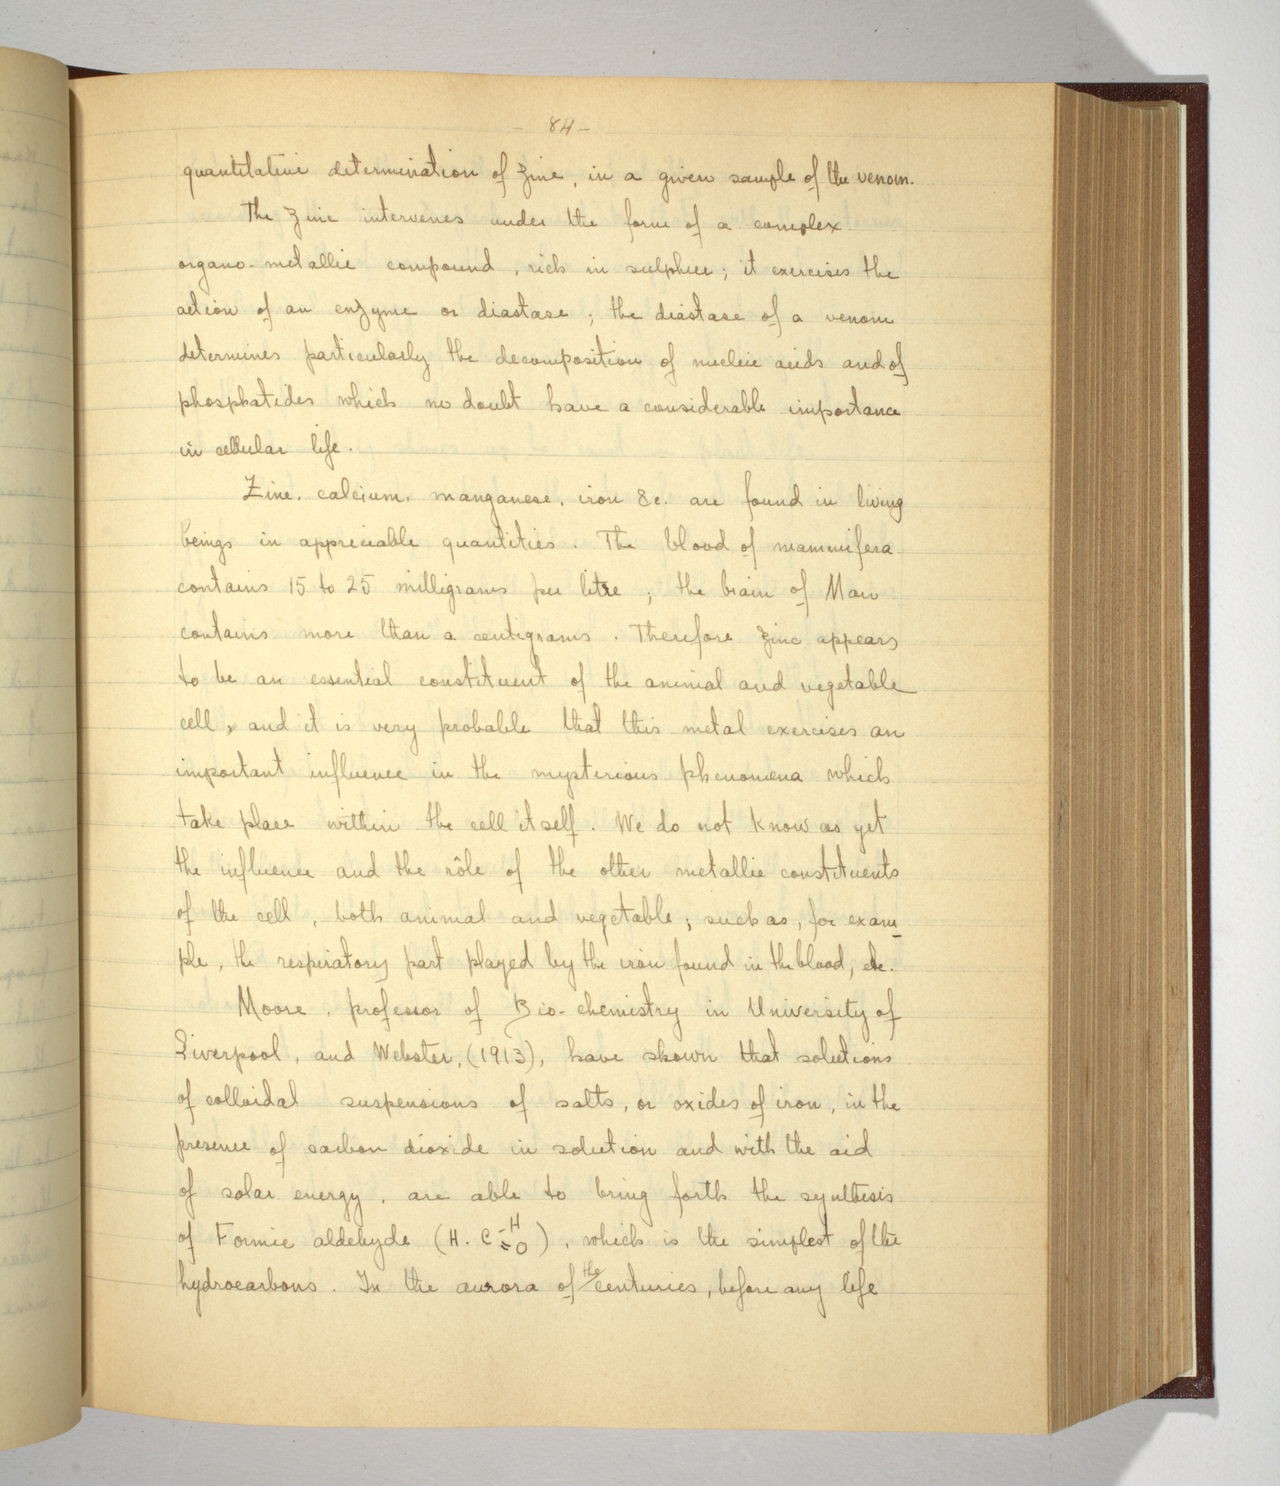 - 84 -
quantitative determination of Zinc, in a given sample of the venom.
The Zinc intervenes under the form of a complex
organo-metallic compound, rich in sulphur; it exercises the
action of an enzyme or diastase; the diastase of a venom
determines particularly the decomposition of nucleic acids and of
phosphatides which no doubt have a considerable importance
in cellular life.
Zinc, calcium, manganese, iron &c. are found in living
beings in appreciable quantities. The blood of mammifera
contains 15 to 25 milligrams per litre; the brain of Man
contains more than a centigrams. Therefore Zinc appears
to be an essential constituent of the animal and vegetable
cell, and it is very probable that this metal exercises an
important influence in the mysterious phenomena which
take place within the cell itself. We do not know as yet
the influence and the rôle of the other metallic constituents
of the cell, both animal and vegetable; such as, for exam-
ple, the respiratory part played by the iron found in the blood, etc.
Moore, professor of Bio-chemistry in University of
Liverpool, and Webster, (1913), have shown that solutions
of colloidal suspensions of salts, or oxides of iron, in the
presence of carbon dioxide in solution and with the aid
of solar energy, are able to bring forth the synthesis
of Formic aldehyde (H. C -H =O), which is the simplest of the
hydrocarbons. In the aurora of the centuries, before any life